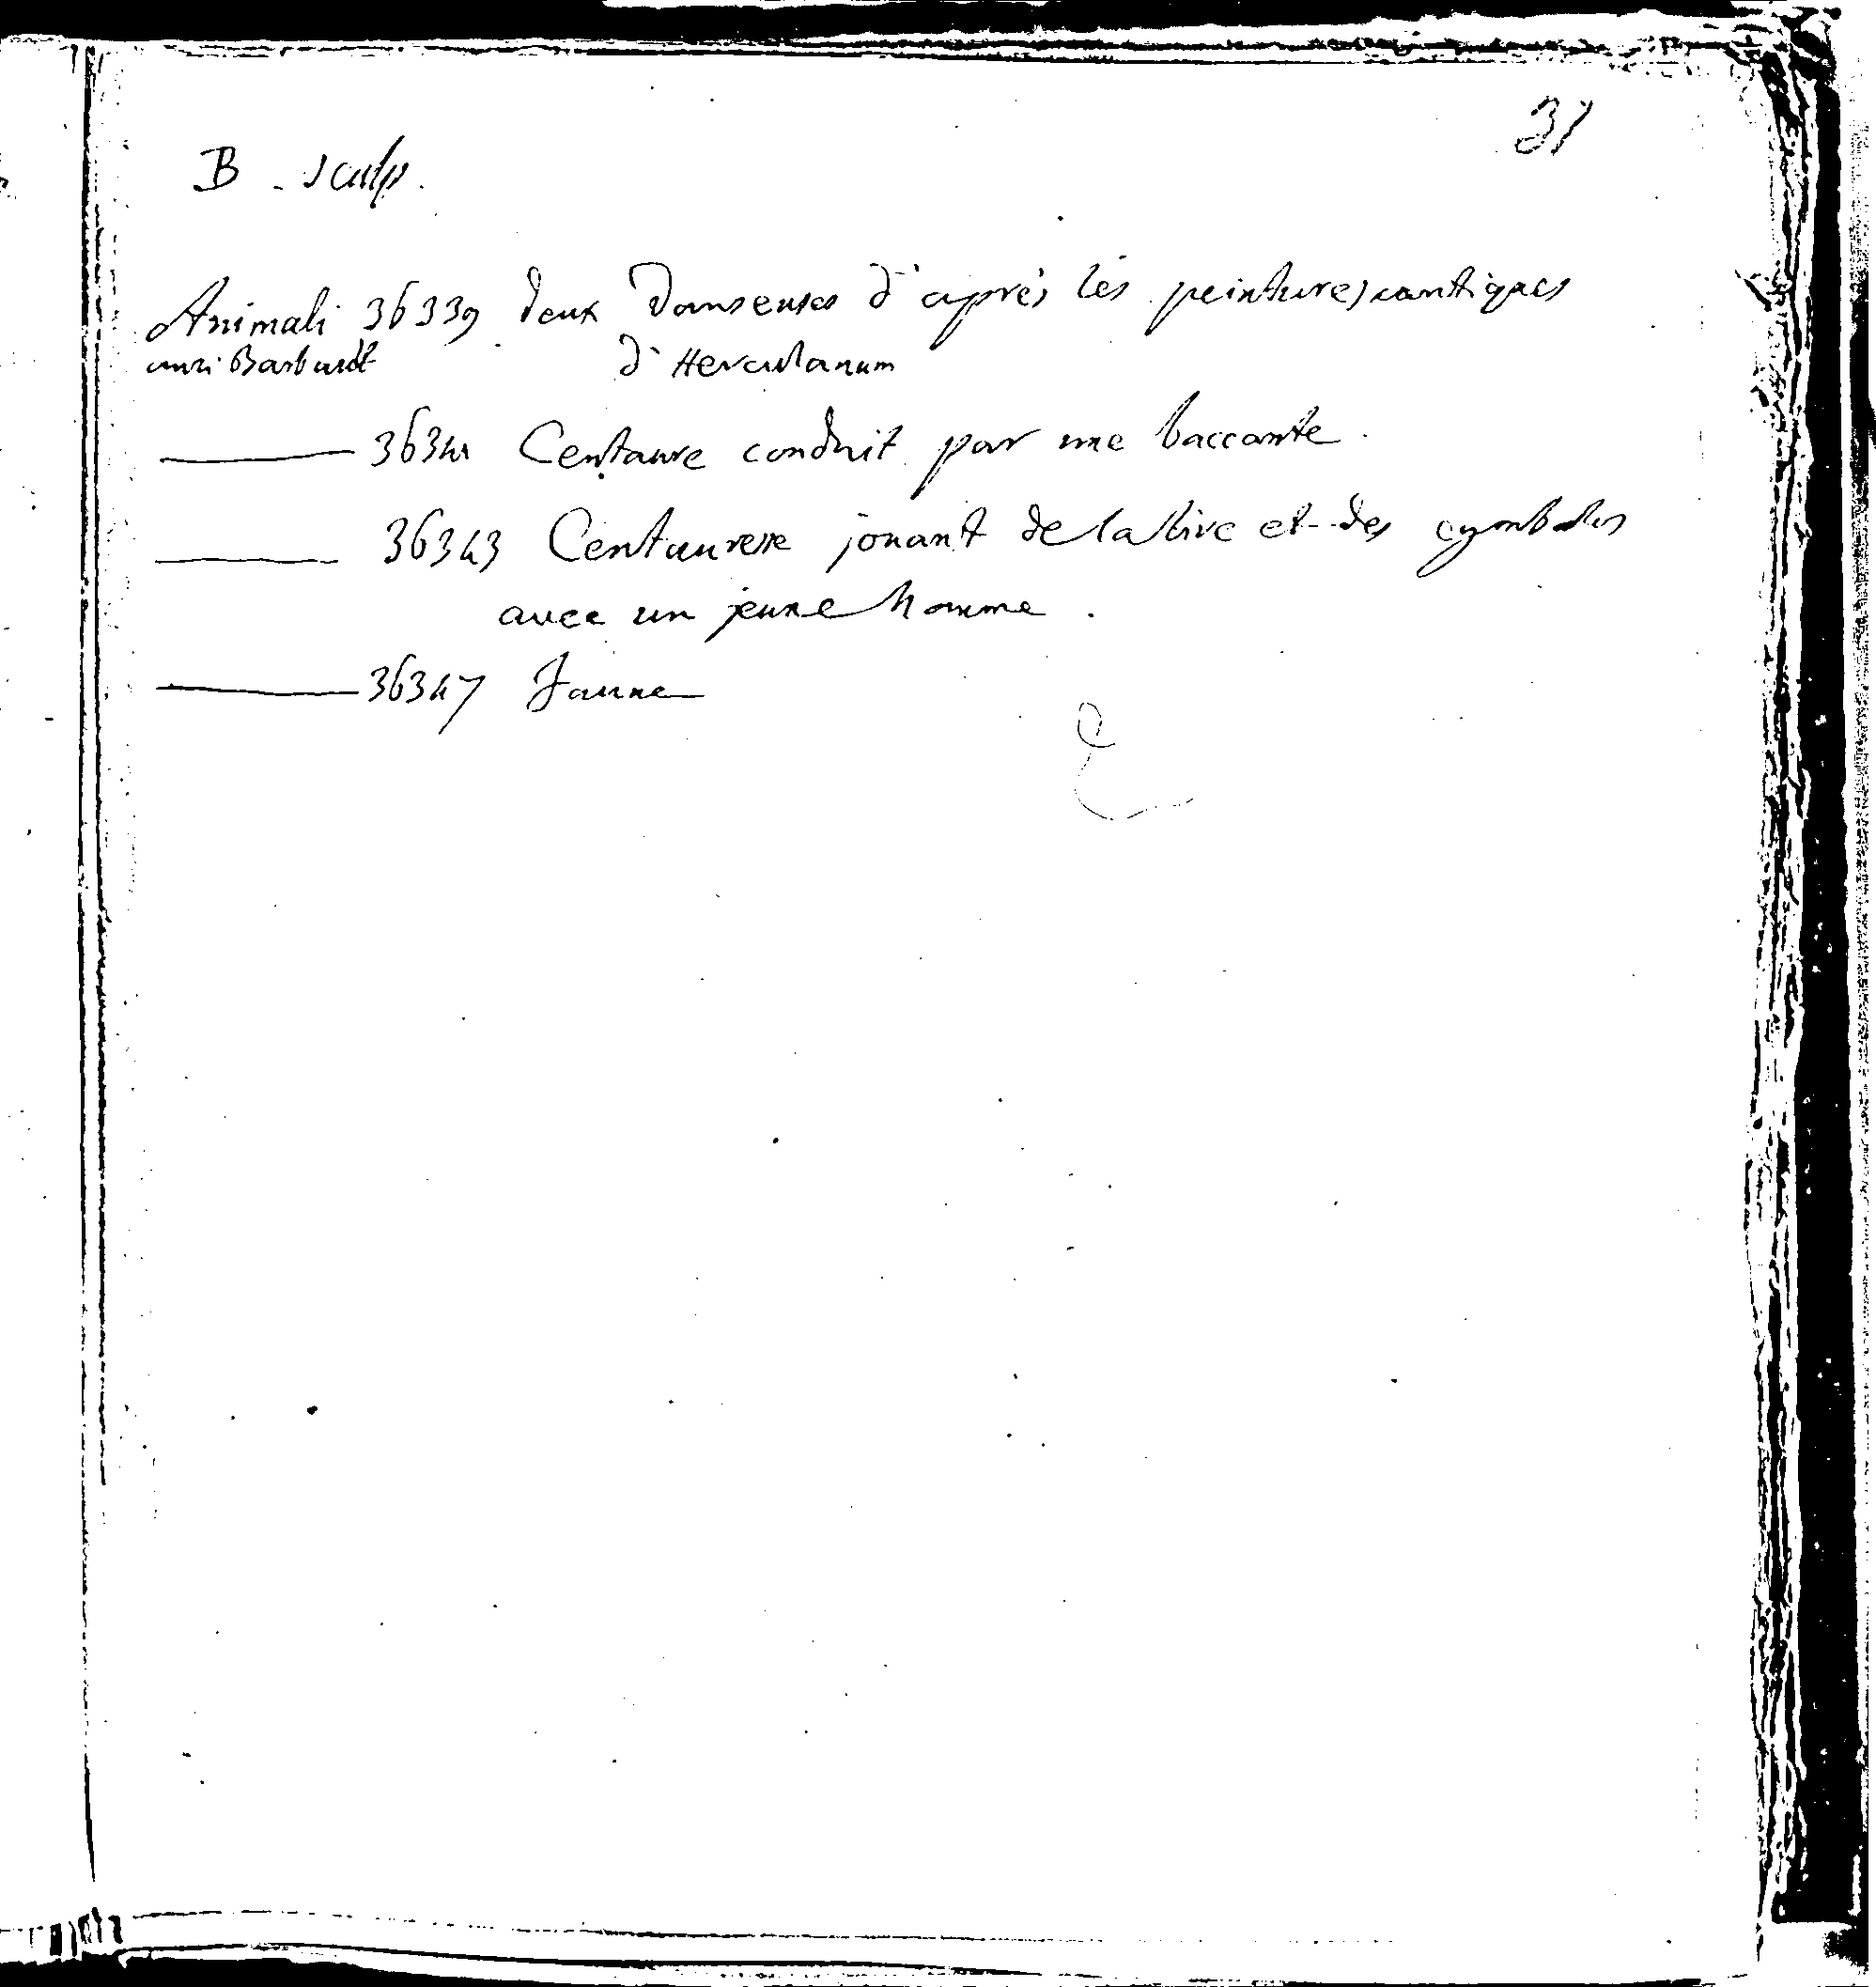 31
B - sculp.
Animali 36339 deux Danseuses d'après les peintures antiques
d'Herculanum
36341 Centaure conduit par une baccante.
36343 Centauresse jouant de la lire et des cymbales
avec un jeune homme.
36347 Faune